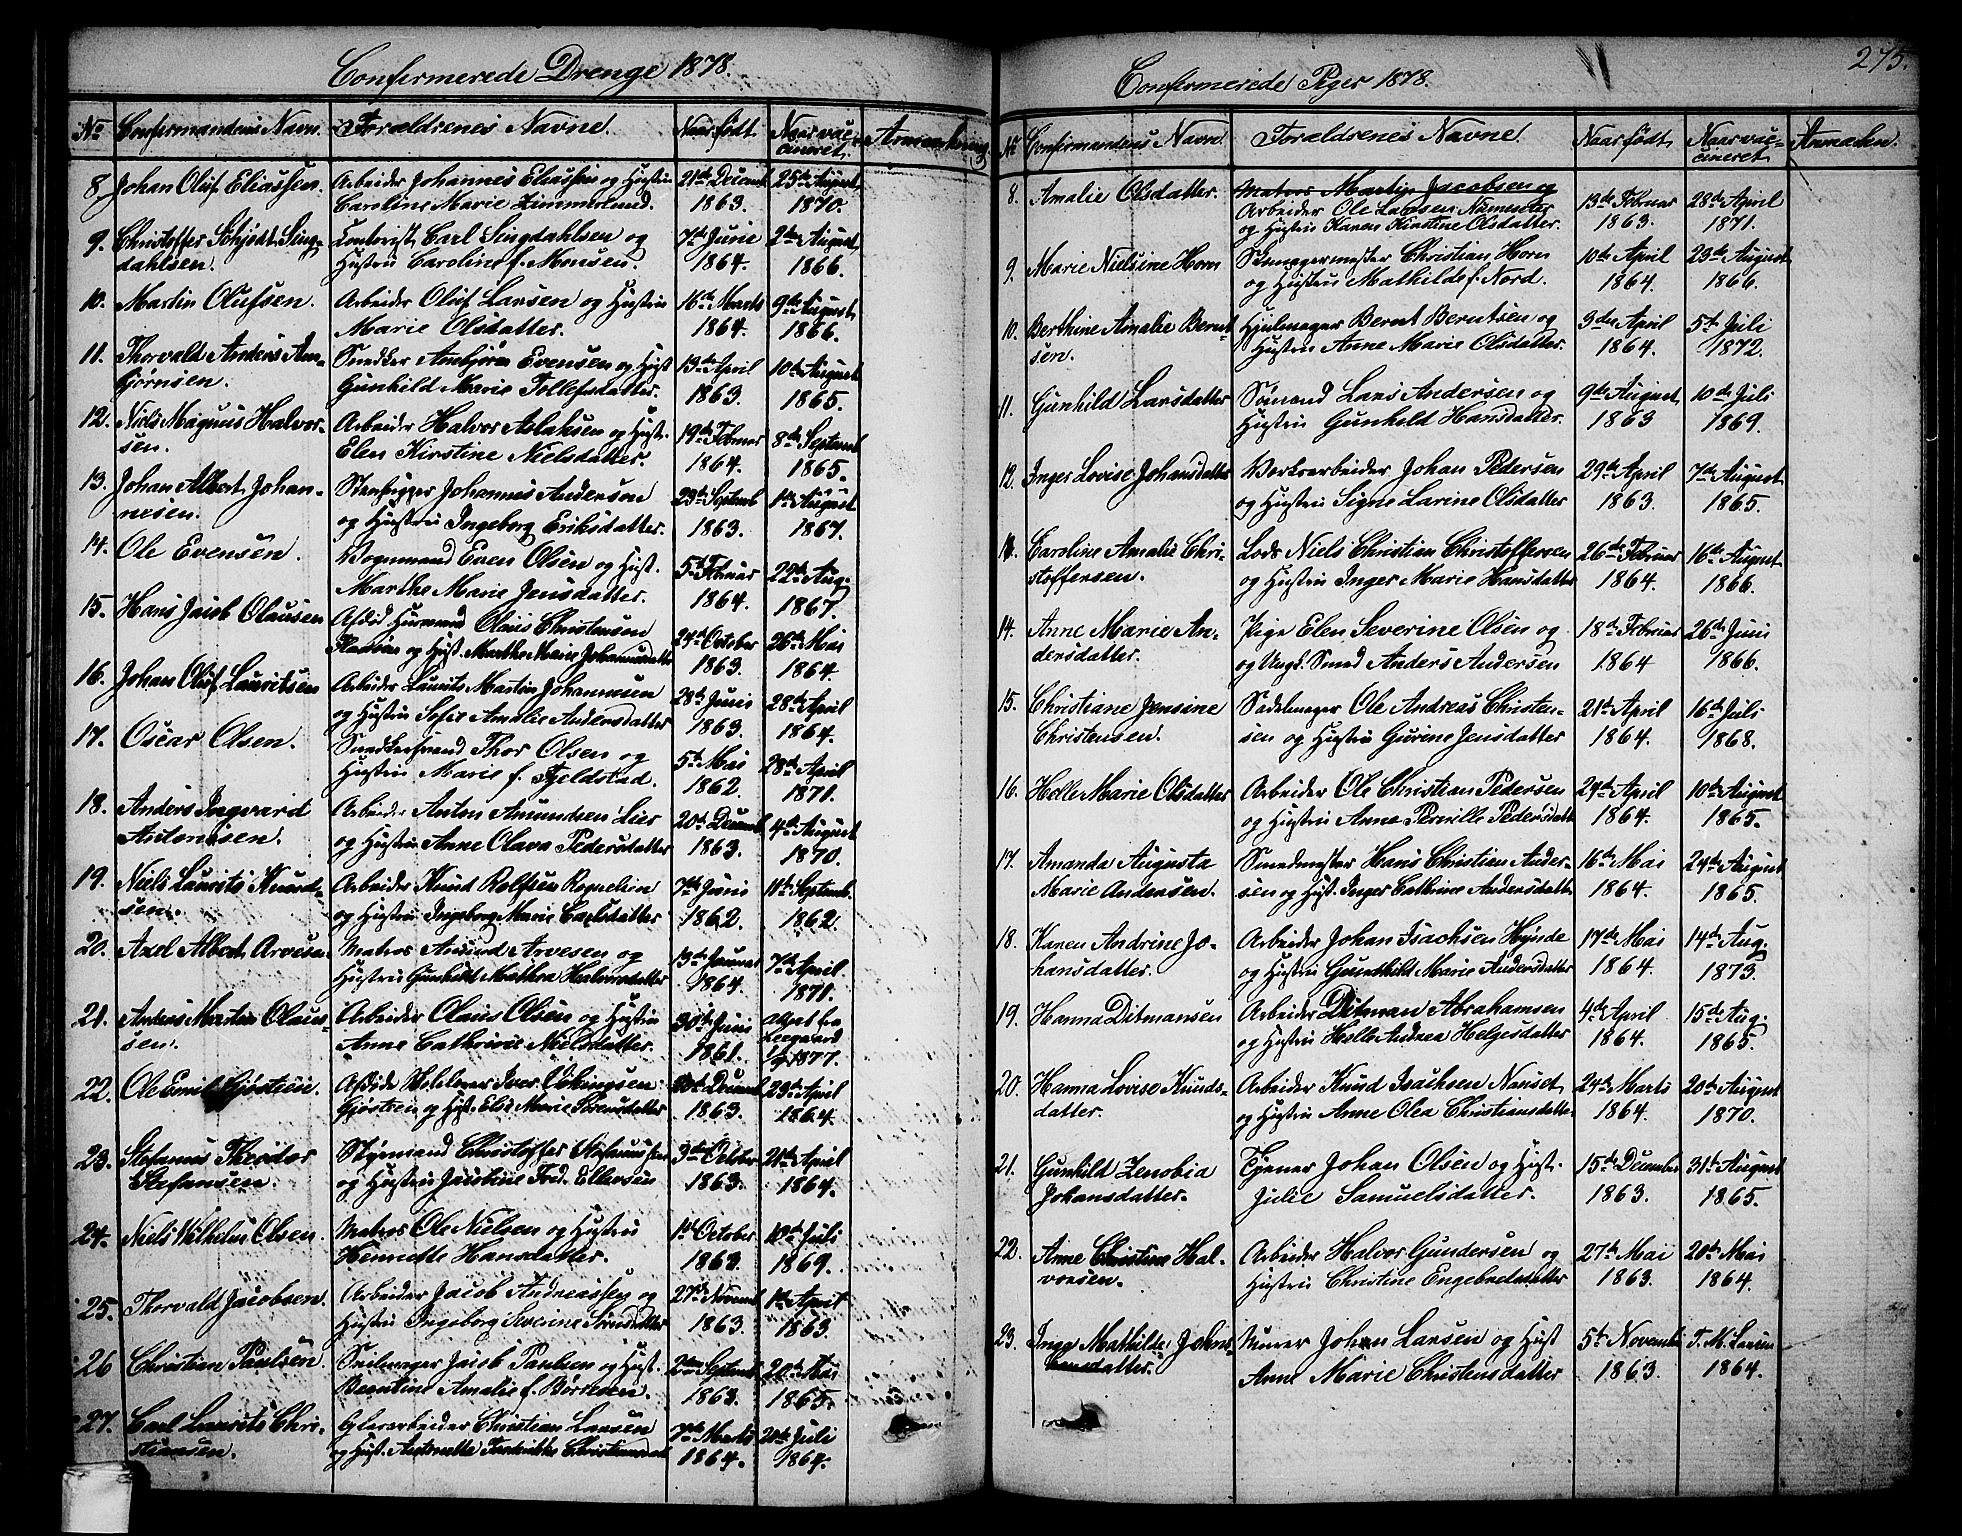 Confermerede Drenge 1878.
No Confirmandens Navn. Forældrenes Navne. Naar født Naar vac-
cineret Anmærkning
8. Johan Oluf Eliassen. Arbeider Johannes Eliassen og Hustru 21de Decemb 25de August
Caroline Marie 1863. 1870.
9. Christoffer Schjødt Sing- Contorist Carl Singdahlsen og 7de Junie 2den August
dahlsen. Hustru Caroline f. Monsen. 1864. 1866.
10. Martin Olufsen. Arbeider Oluf Larsen og Hustru 16de Marts 9de August
Marie Olsdatter. 1864. 1866.
11. Thorvald Anders Am- Snedker Ambjørn Evensen og Hust 13de April 10de August
bjørnsen. Gunhild Marie Tollefsdatter. 1863. 1865.
12. Niels Magnus Halvor- Arbeider Halvor Aslaksen og Hust. 19de Februar 8de Septemb
sen. Elen Kirstine Nielsdatter. 1864. 1865.
13. Johan Albert Johan- Johannes Andersen 23de Septemb 1ste August
nesen. og Hustru Ingeborg Eriksdatter. 1863. 1867.
14. Ole Evensen. Vognmand Even Olsen og Hust. 5te Februar 22de Aug.
Marthe Marie Jensdatter. 1864. 1867.
15. Hans Jacob Olausen Afdø Huusmand Olaus Christensen 24de October 26de Mai
og Hust. Marthe Marie Johannesdatter 1863. 1864.
16. Johan Oluf Lauritsen Arbeider Laurits Martin Johannesen 28de Junii 28de April
og Hustru Sofie Amalie Andersdatter 1863. 1864.
17. Oscar Olsen. Snedkersvend Thor Olsen og 5te Mai 28de April
Hustru Marie f. Fjeldstad. 1862. 1871.
18. Anders Ingvard Arbeider Anton Amundsen Lier 20de Decemb 4de August
Antonisen. og Hustru Anne Olava Pedersdatter 1863. 1870.
19. Niels Laurits Knud- Arbeider Knud Rolfsen 7de Junii 11te Septemb.
sen. og Hustru Ingeborg Marie Carlsdatter 1862. 1862.
20. Axel Albert Arvesen Matros Amund Arvesen og 13de Januar 7de April
Hustru Gunhild Mathea Halvorsdatter 1864. 1871.
21. Anders Martin Olaus- Arbeider Olaus Olsen og Hustru 30te Junii attest fra
sen. Anne Cathrine Nielsdatter. 1861. 1877.
22. Ole Emil Gjøstsen. Afdøde Iver 30te Decemb 23de April
Gjøstsen og Hst. Else Marie Sørensdatter 1863. 1864.
23. Stefanus Theodor Styrmand Christoffer Stefanussen 3die October 21de April
Stefansen. og Hustru Jacobine Fred. Ellevsen 1863. 1864.
24. Niels Wilhelm Olsen. Matros Ole Nielsen og Hustru 1ste October 10de Juli
Hennette Hansdatter. 1863. 1869.
25. Thorvald Jacobsen. Arbeider Jacob Andreassen og 27de Novemb 1ste April
Hustru Ingeborg Severine Sørnsdatter 1863. 1863.
26 Christian Paulsen. Seilmager Jacob Paulsen og Hust. 2den Septemb 20de Mai
Berntine Amalie f. Børresen. 1863. 1865.
27. Carl Laurits Chri- Glasarbeider Christian Larsen 7de Marts 20de Juli
stiansen. og Hust. Antonette 1864. 1864.
275.
Confermerede Piger 1878.
No Confirmandens Navn Forældrenes Navne. Naar født Naar vac-
cineret Anmærkn.
8. Amalie Olsdatter. Matros Martin Jacobsen og 13de Februar 28de April
Arbeider Ole Larsen 1863. 1871.
og Hustru Karen Kirstine Olsdatter.
9. Marie Nielsine Horn Skomagermester Christian Horn 10de April 23de August
og Hustru Mathilde f. Nord. 1864. 1866.
10. Berthine Amalie Bernt- Hjulmager Bernt Berntsen og 3die April 5te Juli
sen. Hustru Anne Marie Olsdatter. 1864. 1872.
11. Gunhild Larsdatter Sømand Lars Andersen og 9de August 10de Juli
Hustru Gunhild Hansdatter. 1863 1869.
12. Inger Lovise Johansdatter Værksarbeider Johan Pedersen 29de April 7de August
og Hustru Signe Larine Olsdatter 1863. 1865.
Caroline Amalie Chri- Lods Niels Christian Christoffersen 26de Februar 16de August
stoffersen. og Hustru Inger Marie Hansdatter 1864. 1866.
14. Anne Marie An- Pige Elen Severine Olsen og 18de Februar 26de Juni
dersdatter. og Ungk. Smed Anders Andersen 1864 1866.
15. Christiane Jensine Sadelmager Ole Andreas Christen- 21de April 16de Juli
Christensen. sen og Hustru Gurine Jensdatter 1864. 1868.
16. Helle Marie Olsdatter Arbeider Ole Christian Pedersen 29de April 10de August
og Hustru Anne Pernille Pedersdatt 1864. 1865.
17. Amanda Augusta Smedmester Hans Christian Ander- 16de Mai 24de August
Marie Andersen. sen og Hust. Inger Cathrine Andersdatt. 1864. 1865.
18. Karen Andrine Jo- Arbeider Johan Isachsen Hynde 17de Mai 14de Aug.
hansdatter. og Hustru Gunhild Marie Andersdatter 1864. 1873.
19. Hanna Ditmansen Arbeider Ditman Abrahamsen 4de April 15de Aug.
og Hustru Helle Andrea Helgesdatter 1864. 1865.
20. Hanna Lovise Knuds- Arbeider Knud Isachsen Nanset 24de Marts 20de August
datter. og Hustru Anne Olea Christiansdatter 1864. 1870.
21. Gunhild Zenobia Tjener Johan Olsen og Hust. 15de December 31te August
Johansdatter. Julie Samuelsdatter. 1863. 1865.
22. Anne Christine Hal- Arbeider Halvor Gundersen og 27de Mai 20de Mai
vorsen. Hustru Christine Engebredsdatter 1863. 1864.
23. Inga Mathilde Johns- Murer Johan Larsen og Hust 5te Novemb
datter. Anne Marie Christensdatter 1863. 1864.